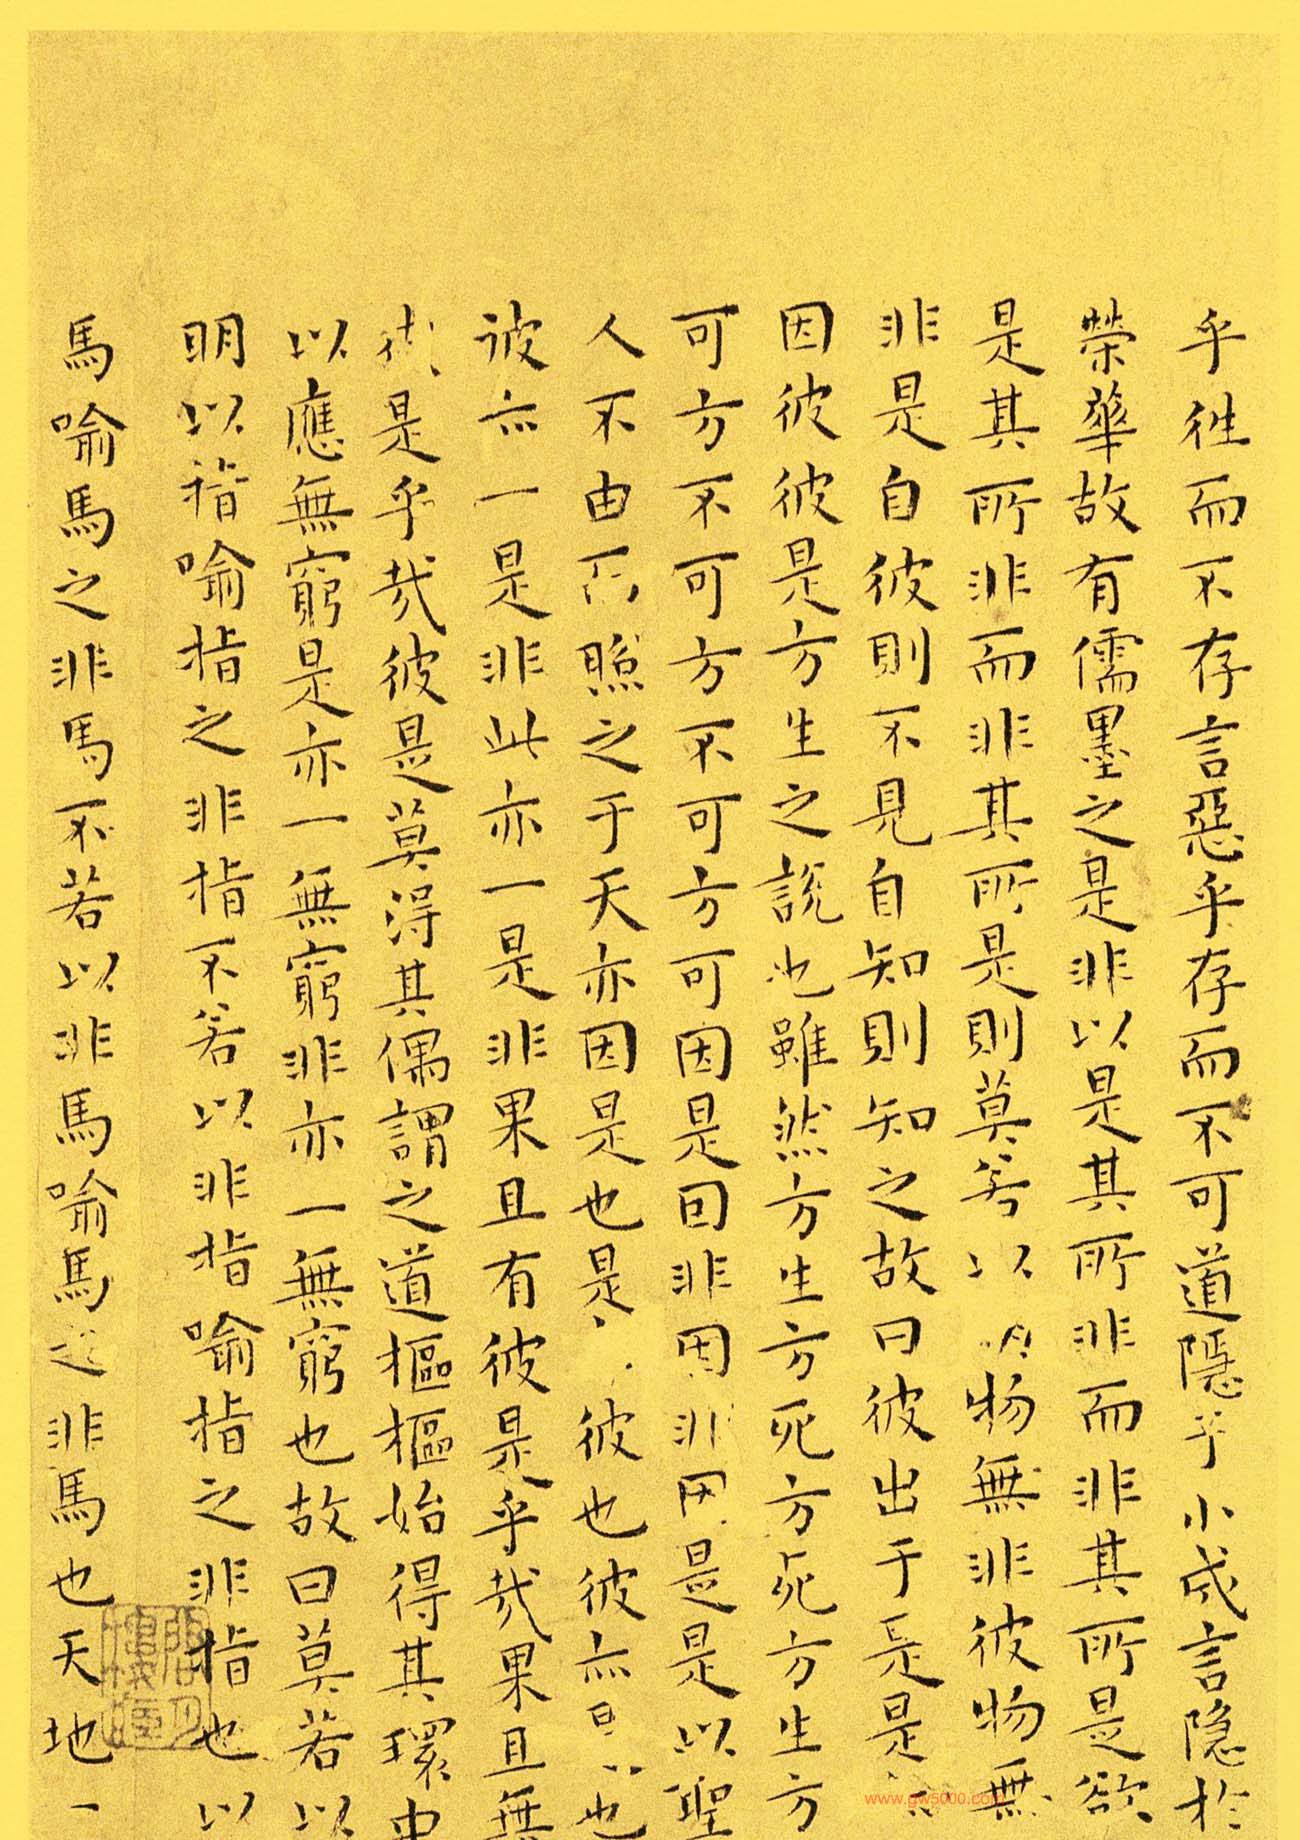 乎往而不存言惡乎存而不可道隱乎小成言隱於
榮華故有儒墨之是非以是其所非而非其所是欲
是其所非而非其所是則莫若以明物無非彼物無
非是自彼則不見自知則知之故曰彼出于是是
因彼彼是方生之說也雖然方生方死方死方生方
可方不可方不可方可因是因非因非因是是以聖
人不由而照之于天亦因是也是彼也彼亦是也
彼亦一是非此亦一是非果且有彼是乎哉果且無
彼是乎哉彼是莫得其偶謂之道樞樞始得其環中
以應無窮是亦一無窮非亦一無窮也故曰莫若以
明以指喻指之非指不若以非指喻指之非指也以
馬喻馬之非馬不若以非馬喻馬之非馬也天地一
www.gw5000.com